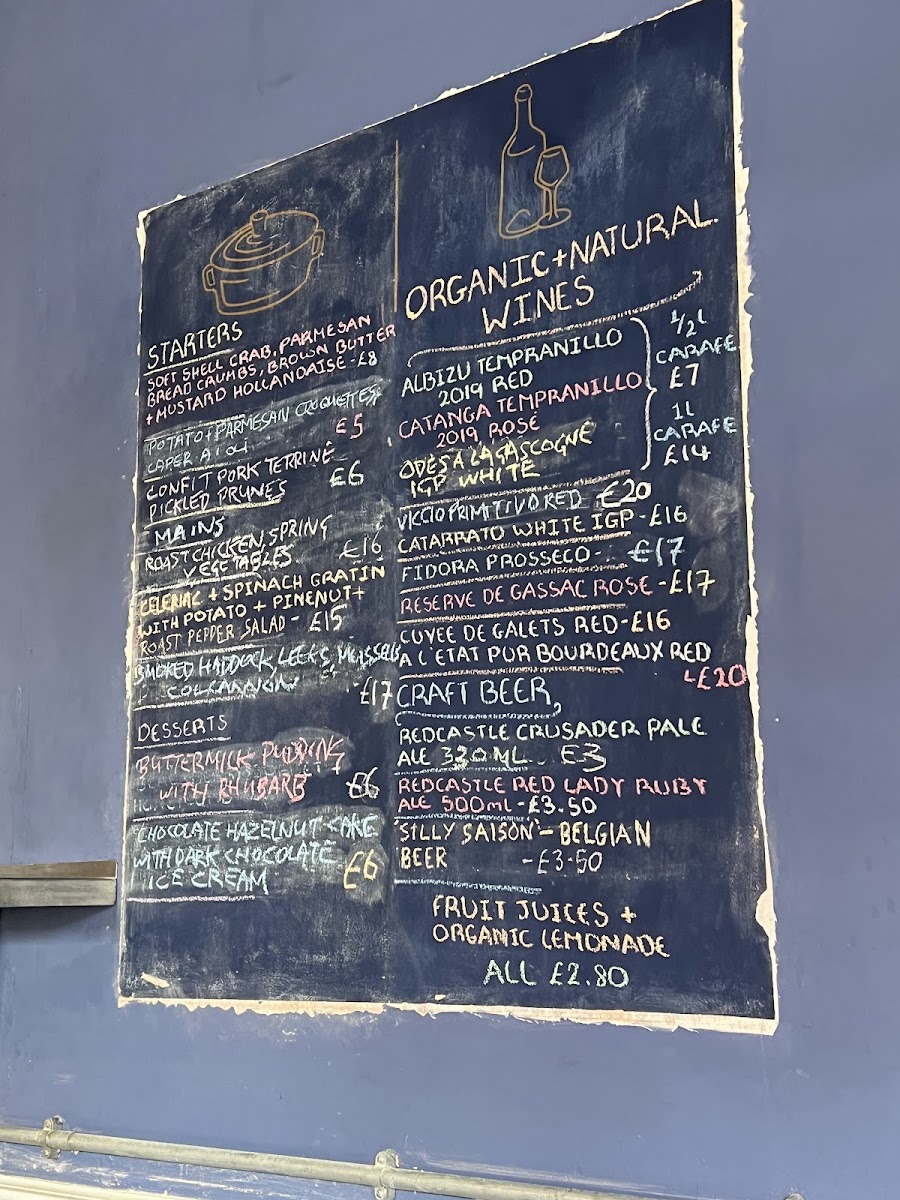 STARTERS
SOFT SHELL CRAB, PARMESAN
BREAD CRUMBS, BROWN BUTTER
+ MUSTARD HOLLANDAISE - £8
POTATO + PARMESAN CROQUETTES
CAPER AIOLI £5
CONFIT PORK TERRINE
PICKLED PRUNES £6
MAINS
ROAST CHICKEN, SPRING
VEGETABLES £16
CELERIAC + SPINACH GRATIN
WITH POTATO + PINENUT +
ROAST PEPPER SALAD - £15
SMOKED HADDOCK, LEEKS, MUSSELS
COLKANNON £17
DESSERTS
BUTTERMILK PUDDING
WITH RHUBARB £6
CHOCOLATE HAZELNUT CAKE
WITH DARK CHOCOLATE
ICE CREAM £6
ORGANIC + NATURAL
WINES
ALBIZU TEMPRANILLO
2019 RED
CATANGA TEMPRANILLO
2019 ROSÉ
ODES A LAGASCOGNE
IGP WHITE
1/2 l
CARAFE
£7
1l
CARAFE
£14
VICCIO PRIMITIVO RED £20
CATARRATO WHITE IGP - £16
FIDORA PROSSECO - £17
RESERVE DE GASSAC ROSE - £17
CUVEE DE GALETS RED - £16
A L'ETAT PUR BOURDEAUX RED
- £20
CRAFT BEER,
REDCASTLE CRUSADER PALE
ALE 330ML £3
REDCASTLE RED LADY RUBY
ALE 500ml - £3.50
'SILLY SAISON' - BELGIAN
BEER - £3.50
FRUIT JUICES +
ORGANIC LEMONADE
ALL £2.80